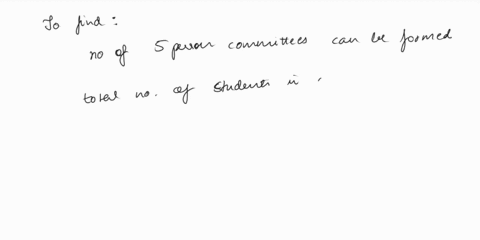 To find :
no of 5 person committees can be formed
total no. of students is